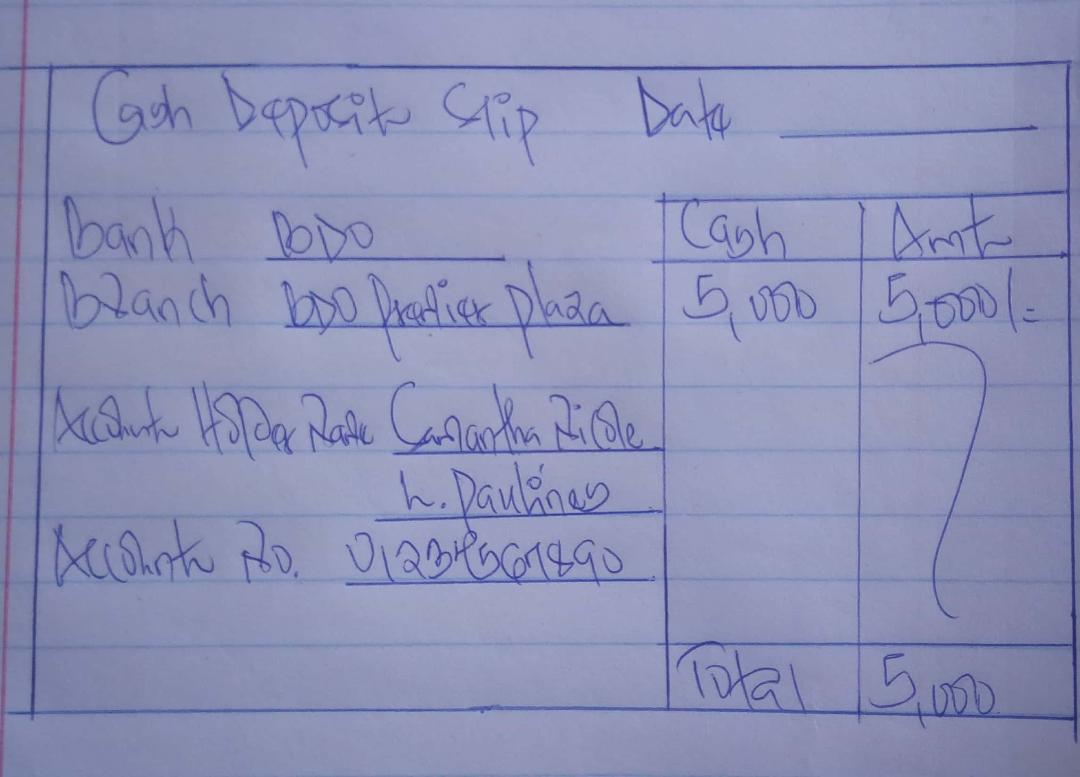 Cash Deposit Slip Date
Bank BDO
Cash Amt
Branch BDO Premier Plaza
5,000 5,000/-
Account Holder Name Samantha Nicole
L. Paulines
Account No. 01234567890
Total 5,000